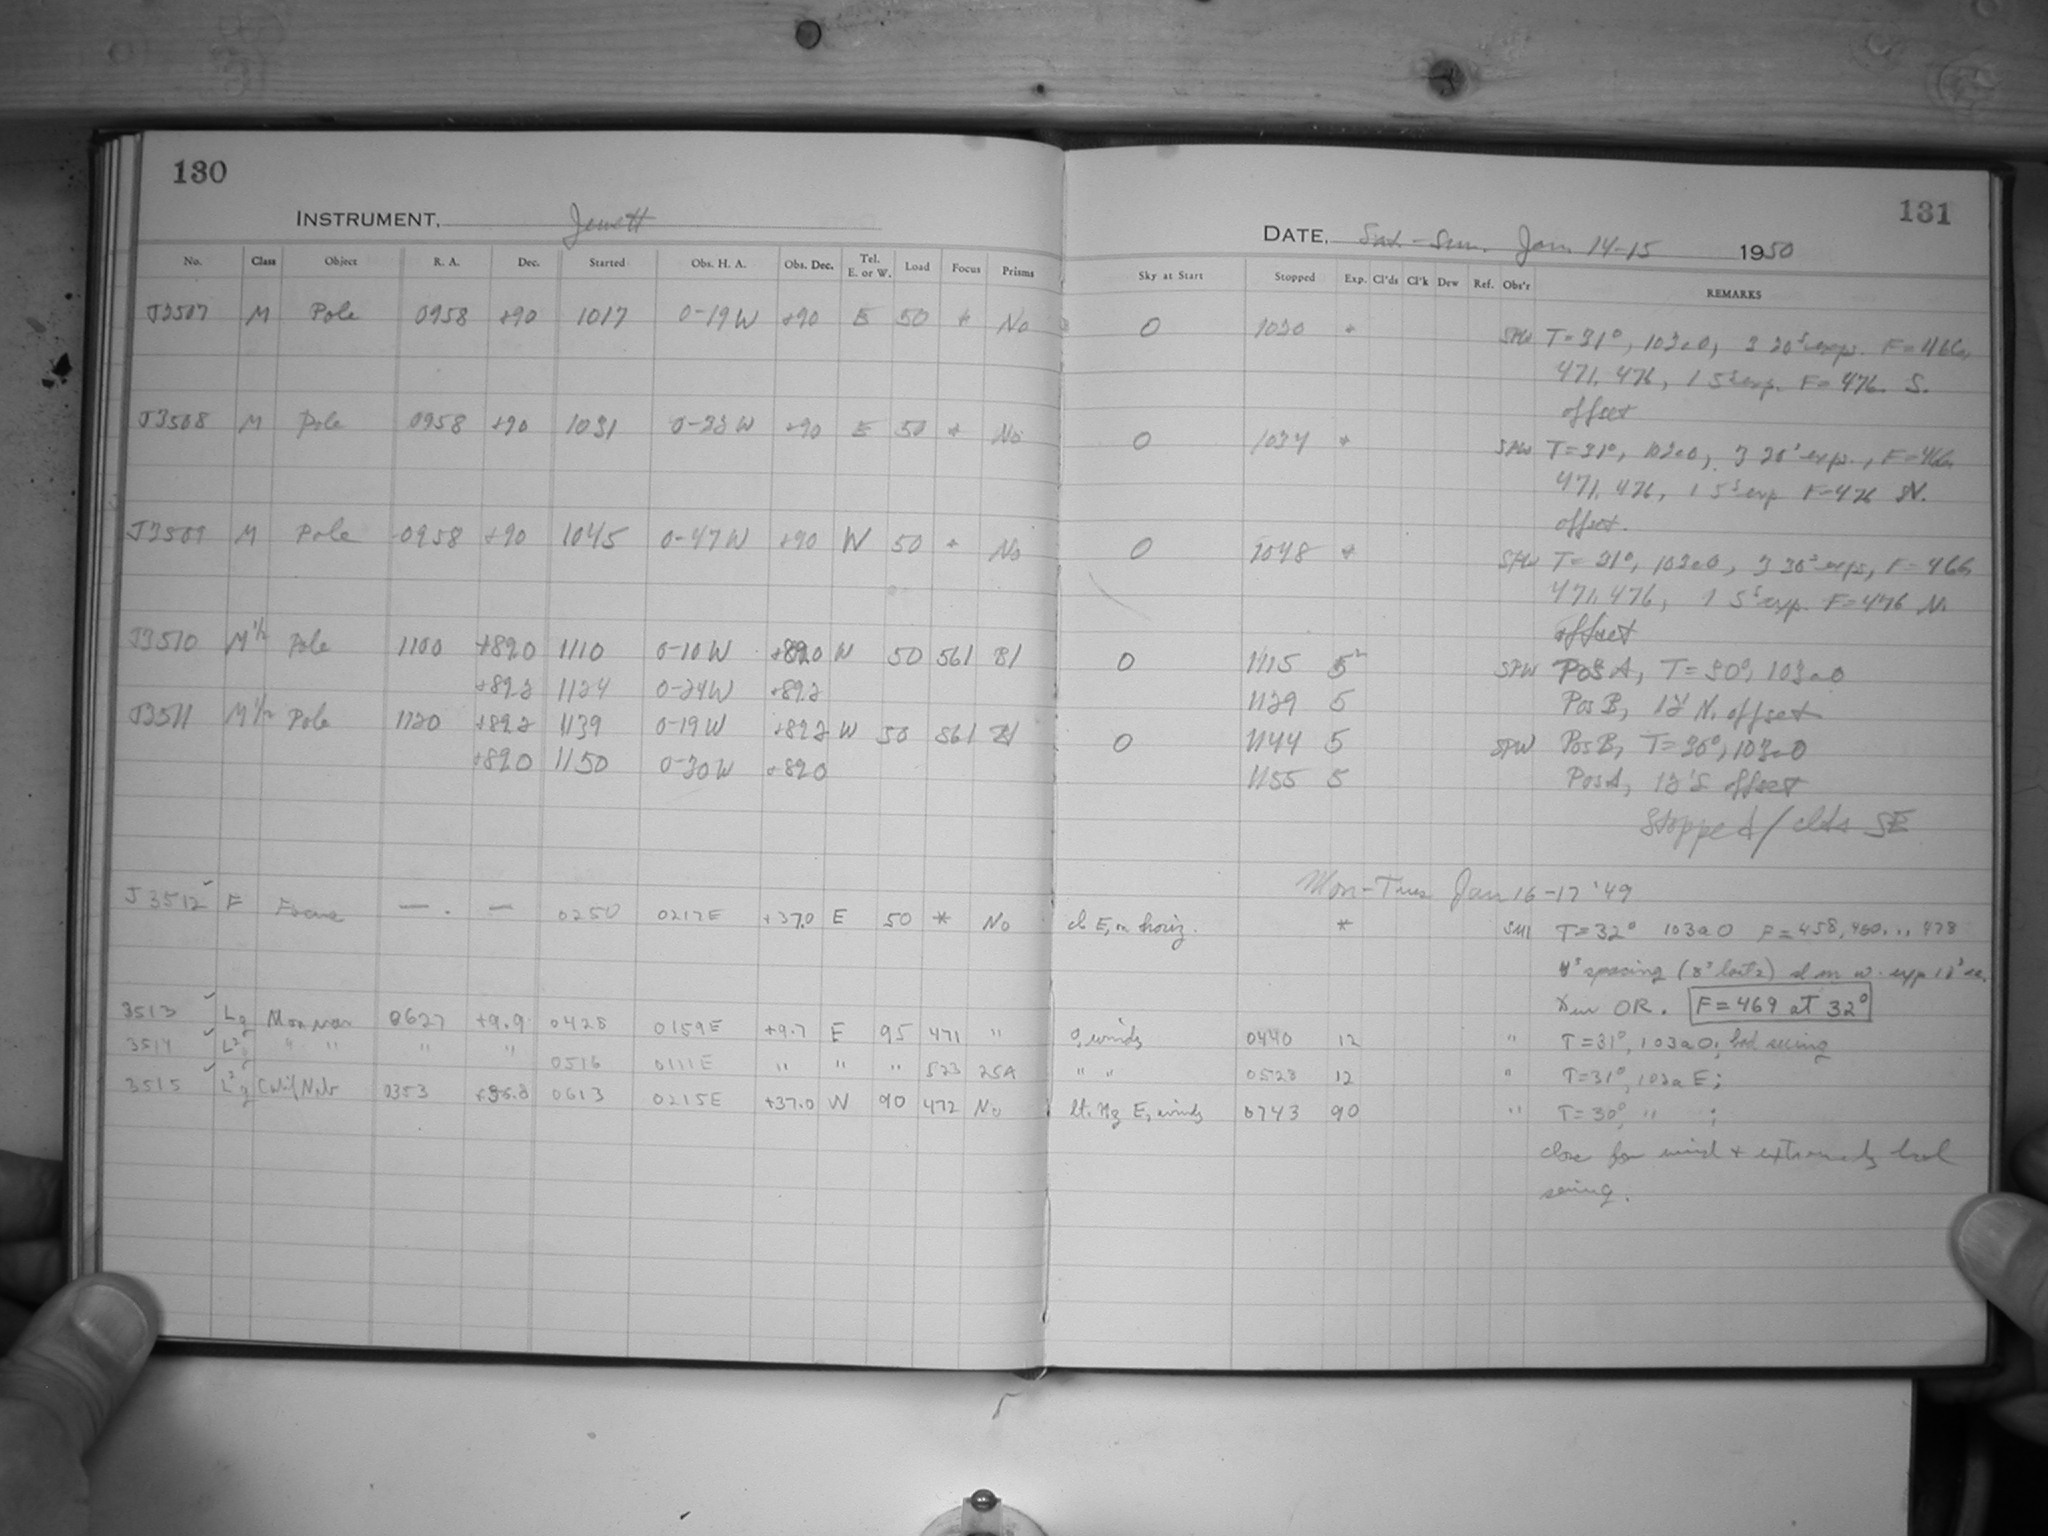 130
INSTRUMENT, Jewett
No. Class Object R. A. Dec. Started Obs. H. A. Obs. Dec. Tel. E. or W. Load Focus Prisms
J3507 M Pole 0958 +90 1017 0-19W +90 E 50 * No
J3508 M Pole 0958 +90 1031 0-33W +90 E 50 * No
J3509 M Pole 0958 +90 1045 0-47W +90 W 50 * No
J3510 M1/2 Pole 1100 +820 1110 0-10W +820 W 50 561 B1
+892 1124 0-24W +892
J3511 M1/2 Pole 1120 +822 1139 0-19W +822 W 50 561 B1
+820 1150 0-30W +820
J3512 F Focus — . — 0250 0217E +37.0 E 50 * No
3513 Lg Mon neb 0627 +9.9 0428 0159E +9.7 E 95 471 "
3514 " " " " 0516 0111E " " " 523 25A
3515 Calif Neb 0353 0613 0215E +37.0 W 90 472 No
131
DATE, Sat-Sun. Jan 14-15 1950
Sky at Start Stopped Exp. Cl'ds Cl'k Dew Ref. Obs'r REMARKS
0 1020 * SPW T=31°, 103a0, 3 20s exp. F=466,
471, 476, 1 5s exp. F=476 S.
offset
0 1034 * SPW T=31°, 103a0, 3 20s exp., F=466,
471, 476, 1 5s exp F=476 N.
offset.
0 1048 * SPW T=31°, 103a0, 3 30s exps, F=466,
471, 476, 1 5s exp. F=476 N.
offset
0 1115 5 SPW Pos A, T=30°, 103a0
1129 5 Pos B, 12' N. offset
0 1144 5 SPW Pos B, T=30°, 103a0
1155 5 Pos A, 12' S offset
Stopped / clds SE
Mon-Tues Jan 16-17 '49
cl E, on horiz. * T=32° 103aO F=458, 460... 478
spacing (8s last 2)
OR. F=469 at 32°
0, windy 0440 12 " T=31°, 103aO; bad seeing
" " 0528 12 " T=31°, 103a E;
lt. Hz E, windy 0743 90 " T=30°, " ;
close for wind + extremely bad
seeing.